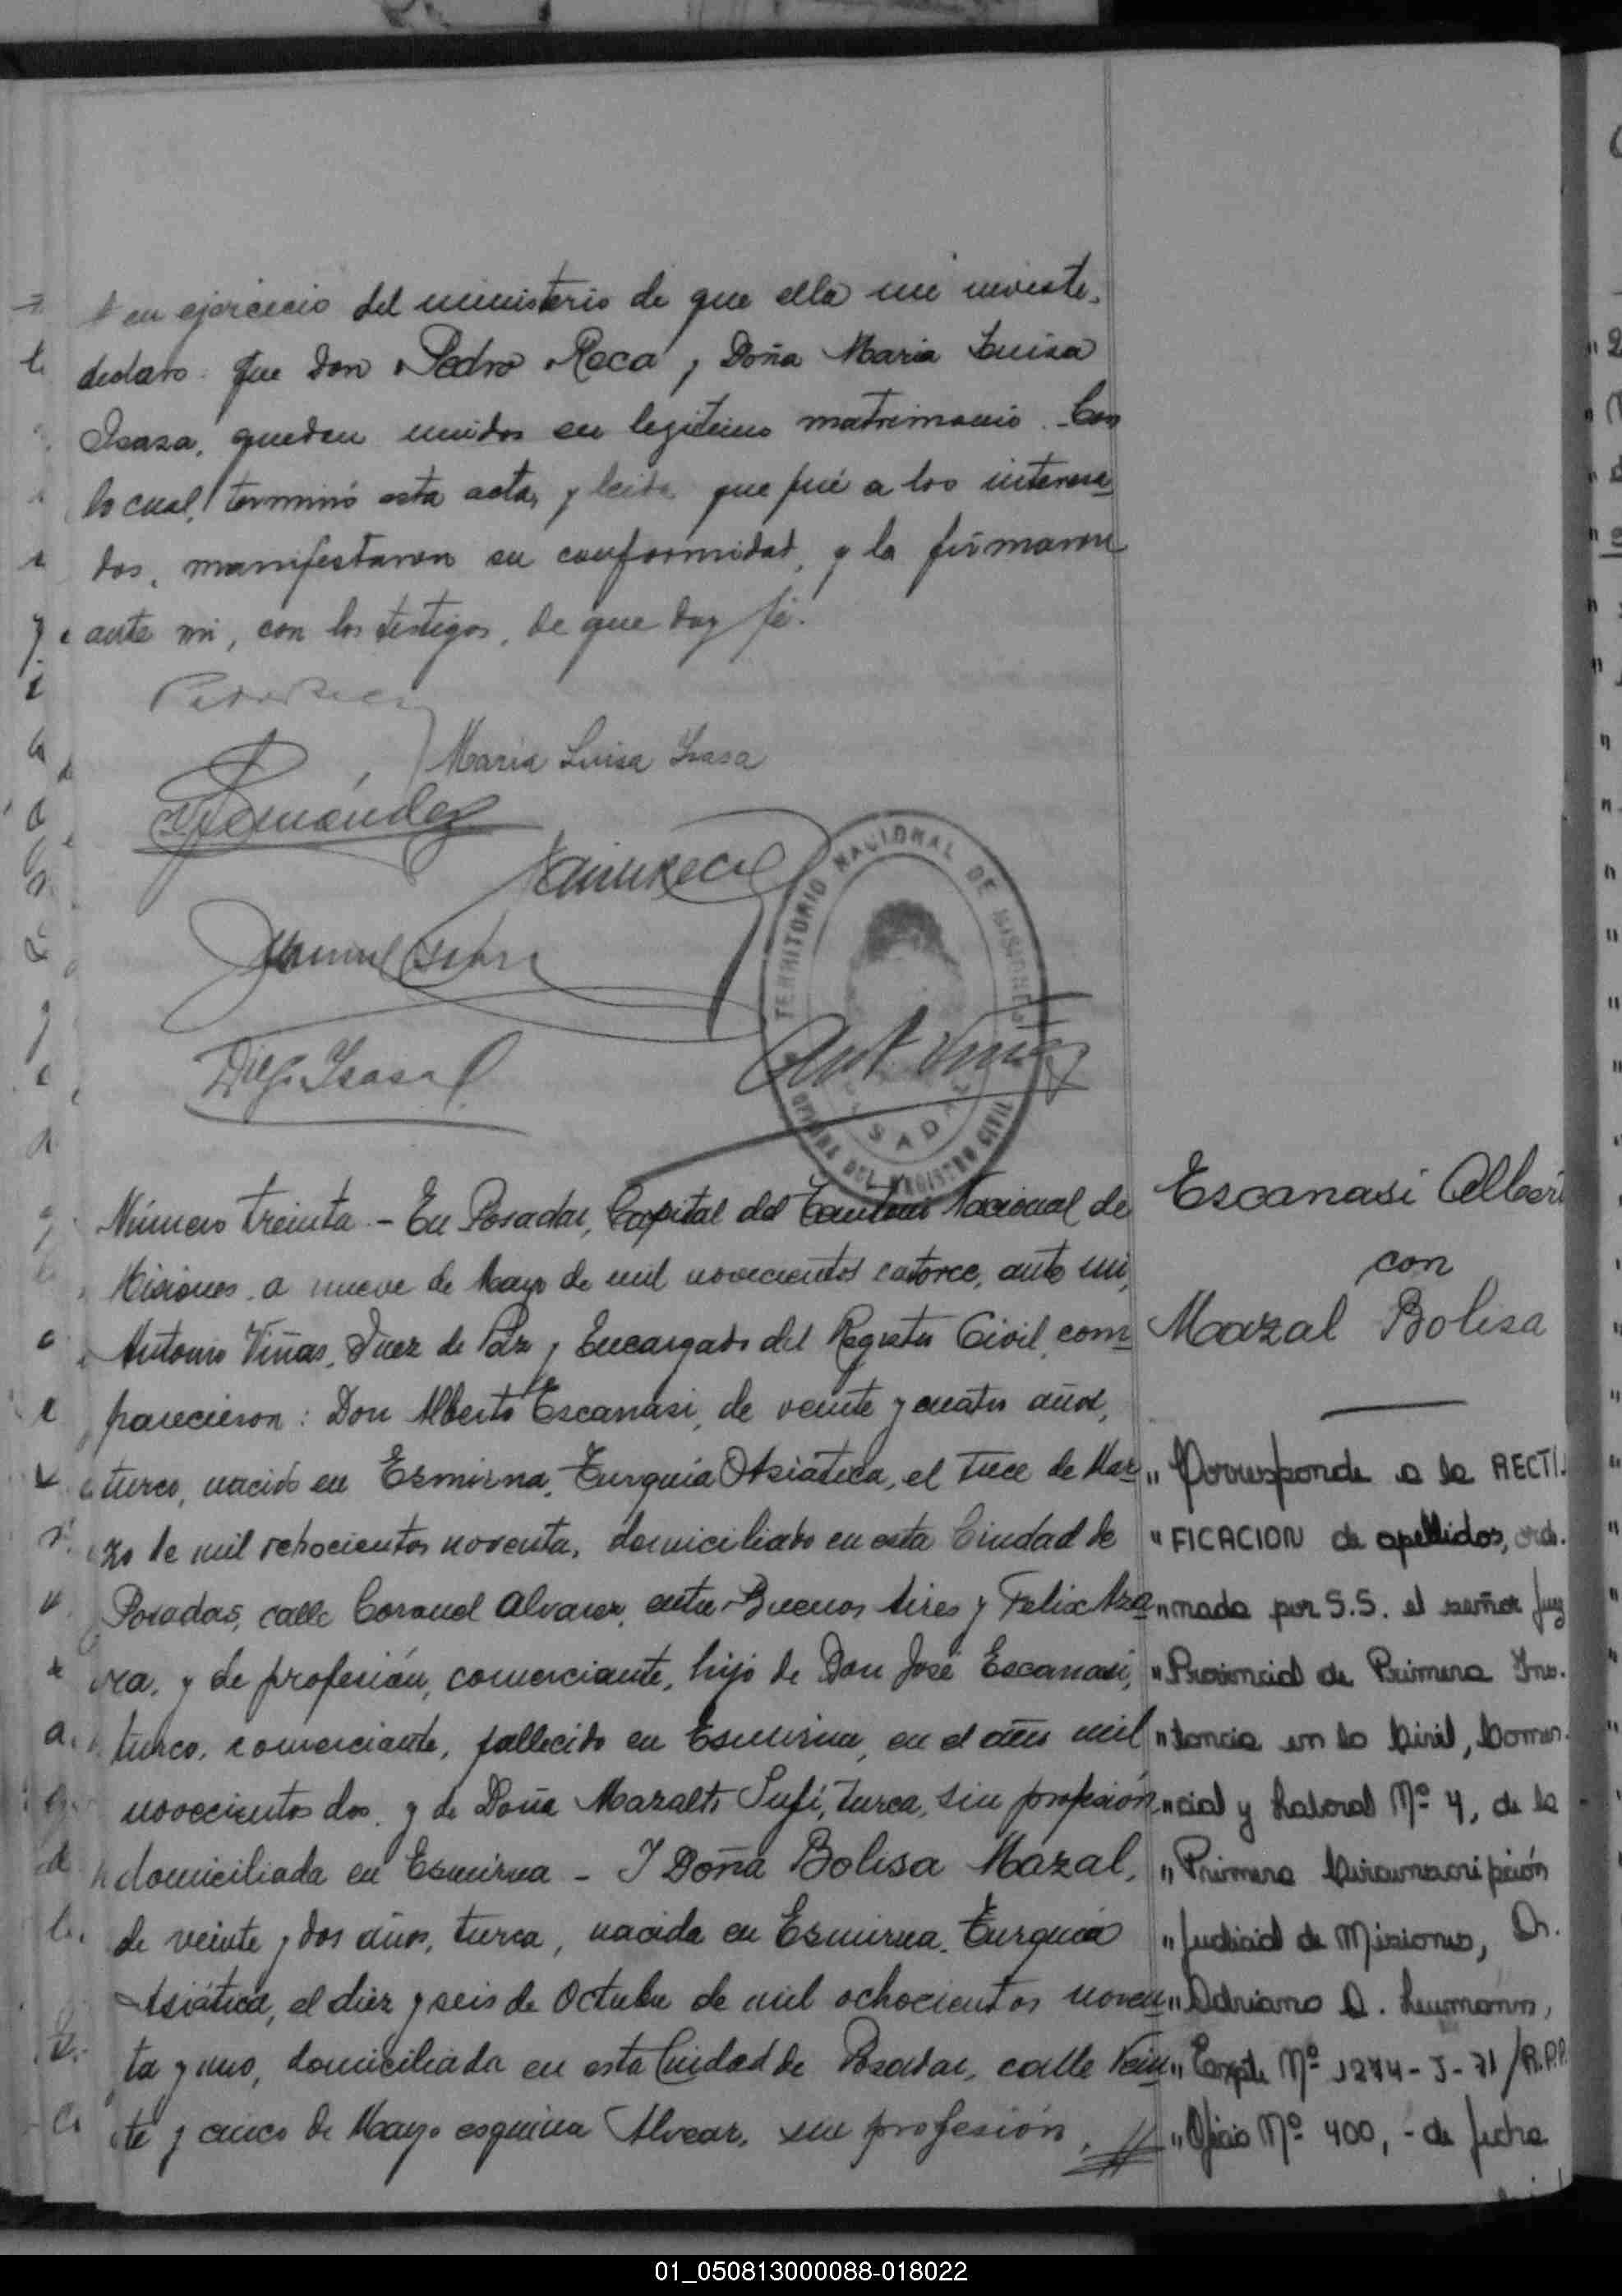 en ejercicio del ministerio de que ella me inviste,
declaro: que Don Pedro Roca, y Doña Maria Luisa
Isasa, quedan unidos en legitimo matrimonio. Con
lo cual, terminó esta acta, y leida que fué a los interesa
dos, manifestaron su conformidad, y la firmaron
ante mi, con los testigos, de que doy fé.
Pedro Roca
Maria Luisa Isasa
Fernández
Jaime Roca
Manuel
Diego Isasa
Ant. Viñas
TERRITORIO NACIONAL DE MISIONES
POSADAS
OFICINA DEL REGISTRO CIVIL
Número treinta - En Posadas, Capital del Territorio Nacional de
Misiones, a nueve de Mayo de mil novecientos catorce, ante mi,
Antonio Viñas, Juez de Paz y Encargado del Registro Civil, com
parecieron: Don Alberto Escanasi, de veinte y cuatro años,
turco, nacido en Esmirna, Turquia Asiática, el trece de Mar
zo de mil ochocientos noventa, domiciliado en esta Ciudad de
Posadas, calle Coronel Alvarez, entre Buenos Aires y Felix Aza
ra, y de profesión, comerciante, hijo de Don José Escanasi,
turco, comerciante, fallecido en Esmirna, en el año mil
novecientos dos, y de Doña Mazalto Sufi, turca, sin profesión
domiciliada en Esmirna - Y Doña Bolisa Mazal,
de veinte y dos años, turca, nacida en Esmirna, Turquia
Asiática, el diez y seis de Octubre de mil ochocientos noven
ta y uno, domiciliada en esta Ciudad de Posadas, calle Vein
te y cinco de Mayo esquina Alvear, sin profesión, //
Escanasi Albert
con
Mazal Bolisa
" Corresponde a la RECTI.
" FICACION de apellidos, ord.
" nada por S.S. el señor Juez
" Provincial de Primera Ins.
" tancia en lo Civil, Comer.
" cial y Laboral Nº 4, de la
" Primera Circunscripción
" Judicial de Misiones, Dr.
" Adriano A. Leumann,
" Expte Nº 1274-J-71/R.P.P.
" Oficio Nº 400, - de fecha
01_050813000088-018022